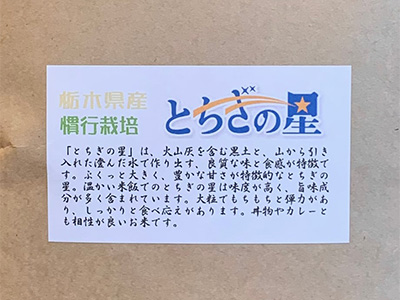 栃木県産
慣行栽培
とちぎの星
「とちぎの星」は、火山灰を含む黒土と、山から引き
入れた澄んだ水で作り出す、良質な味と食感が特徴で
す。ふくっと大きく、豊かな甘さが特徴的なとちぎの
星。温かい米飯でのとちぎの星は味度が高く、旨味成
分が多く含まれています。大粒でもちもちと弾力があ
り、しっかりと食べ応えがあります。丼物やカレーと
も相性が良いお米です。